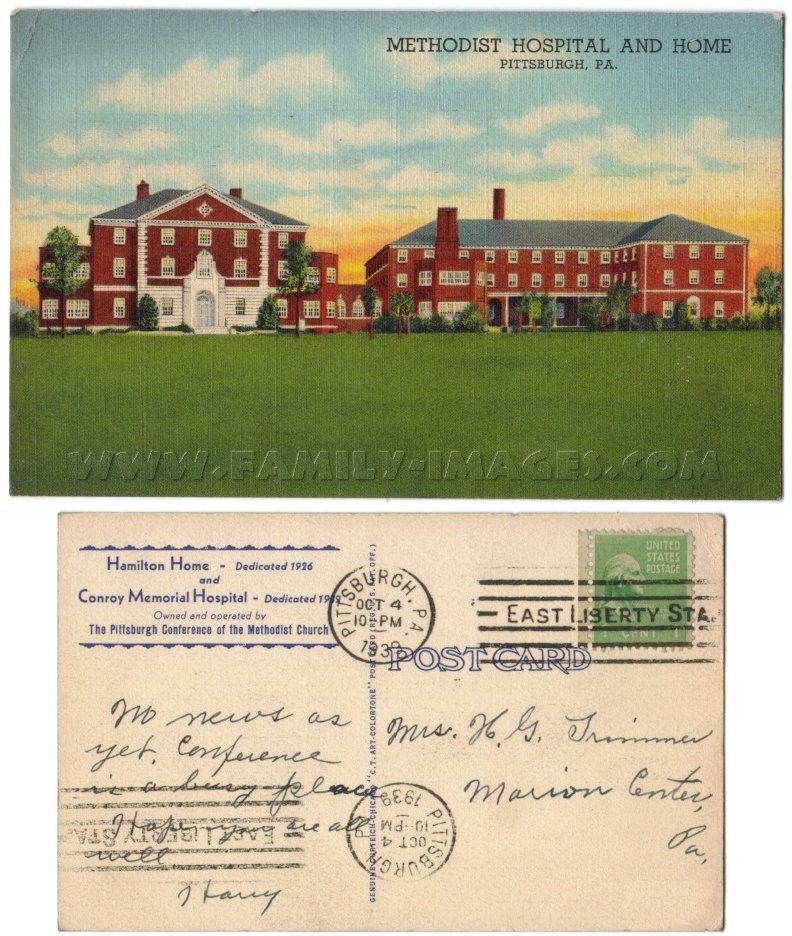 METHODIST HOSPITAL AND HOME
PITTSBURGH, PA.
WWW.FAMILY-IMAGES.COM
Hamilton Home - Dedicated 1926
and
Conroy Memorial Hospital - Dedicated
Owned and operated by
The Pittsburgh Conference of the Methodist Church
PITTSBURGH, PA.
OCT 4
10-PM
1939
EAST LIBERTY STA.
UNITED
STATES
POSTAGE
CENT
POST CARD
GENUINE CURTEICH-CHICAGO "C.T. ART-COLORTONE" POST CARD (REG. U.S. PAT. OFF.)
No news as
yet. Conference
is a busy place
Hope you are all
well.
Harry
Mrs. H. G. Trimmer
Marion Center,
Pa.
EAST LIBERTY STA.
PITTSBURGH
OCT 4
10-PM
1939